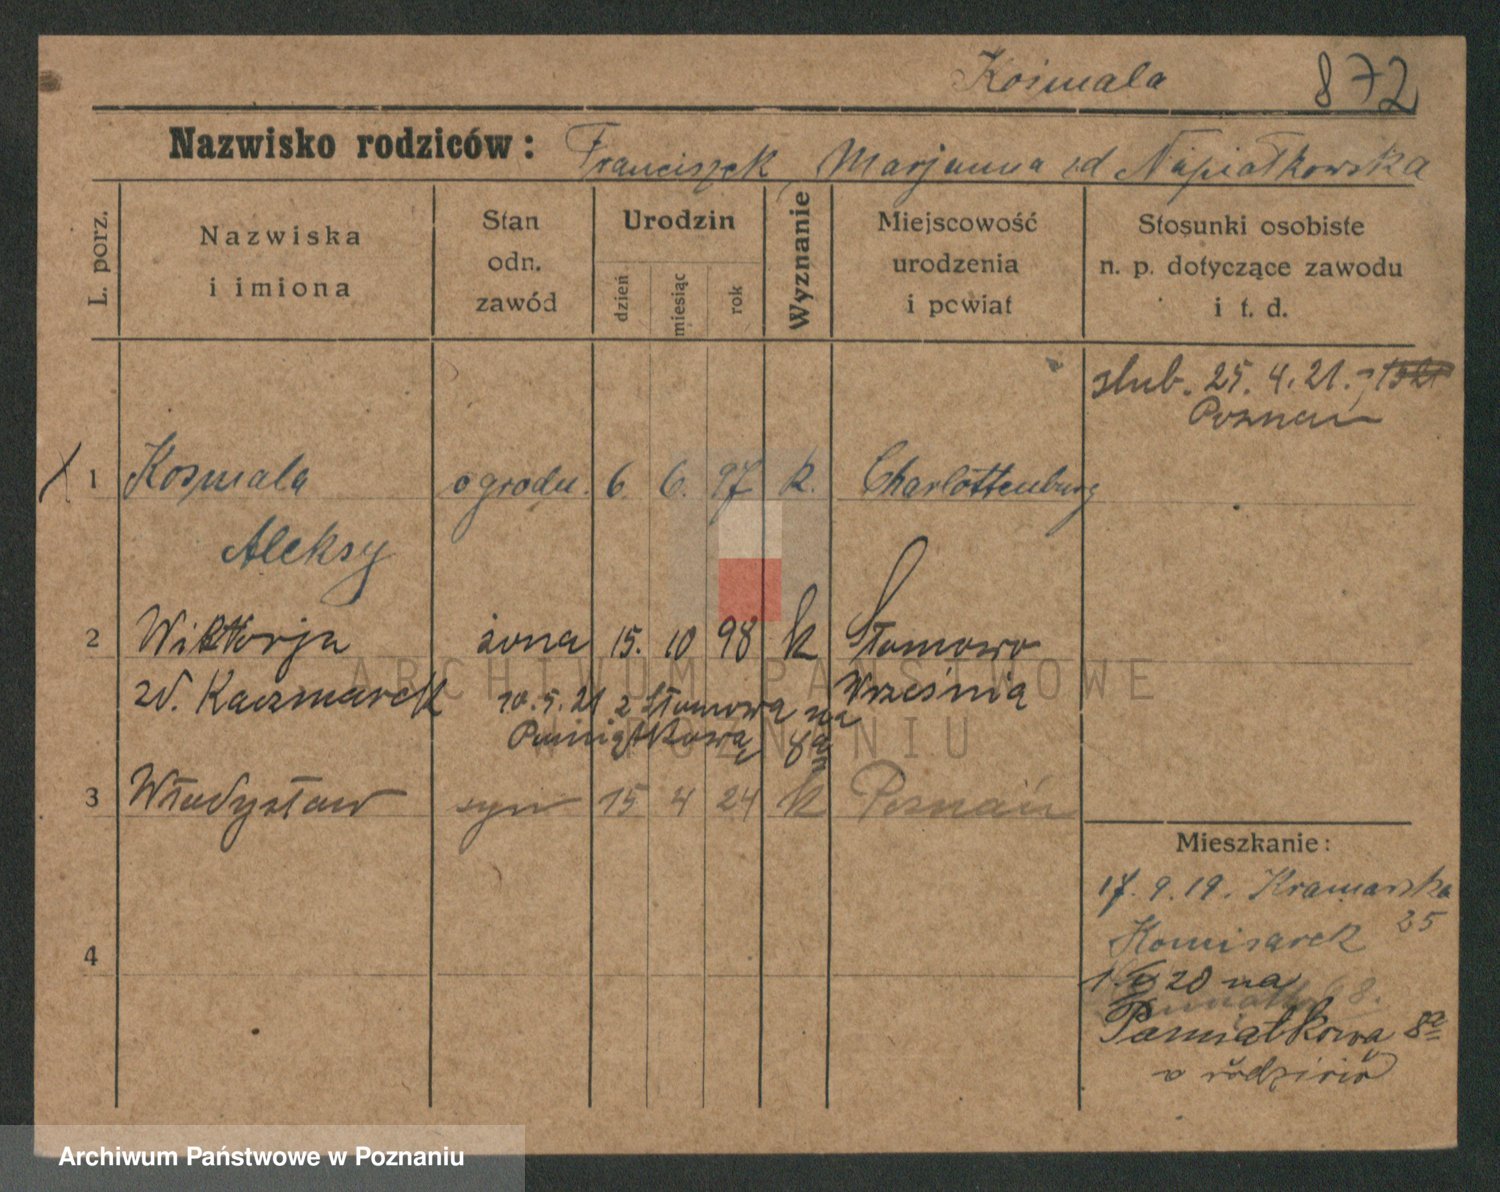 Kosmala 872
Nazwisko rodziców: Franciszek, Marjanna zd Napiałkowska
L. porz.
Nazwiska
i imiona
Stan
odn.
zawód
Urodzin
dzień
miesiąc
rok
Wyznanie
Miejscowość
urodzenia
i powiat
Stosunki osobiste
n. p. dotyczące zawodu
i t. d.
slub. 25. 4. 21.
Poznań
1 Kosmala ogrodn. 6 6. 97 k. Charlottenburg
Aleksy
2 Wiktorja żona 15. 10 98 k Stomowo
zd. Kaczmarek 10. 5. 21 z Stomowa na Września
Pamiątkową 8a
3 Władysław syn 15 4 24 k Poznań
4
Mieszkanie:
17. 9. 19. Kramarska
25
Komisarek
20 na
Pamiatkową 8a
o rodziców
ARCHIWUM PAŃSTWOWE
W POZNANIU
Archiwum Państwowe w Poznaniu